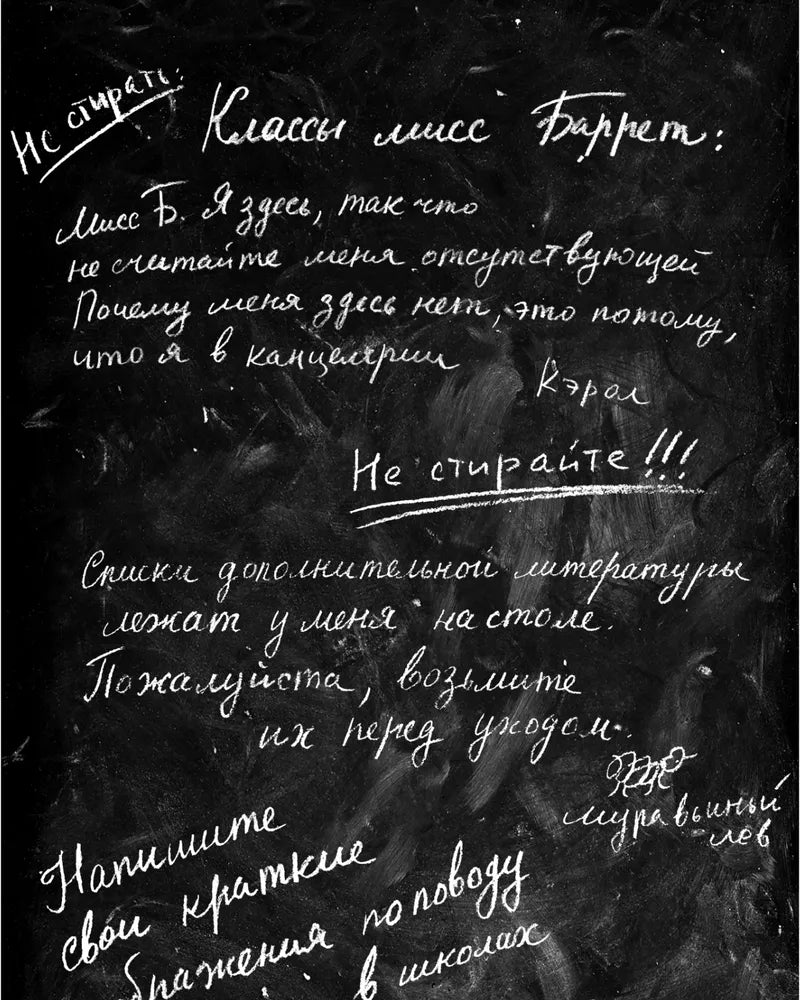 Не стирать:
Классы мисс Баррет:
Мисс Б. Я здесь, так что
не считайте меня отсутствующей
Почему меня здесь нет, это потому,
что я в канцелярии
Кэрол
Не стирайте!!!
Списки дополнительной литературы
лежат у меня на столе.
Пожалуйста, возьмите
их перед уходом.
муравьиный
лев
Напишите
свои краткие
ображения по поводу
в школах